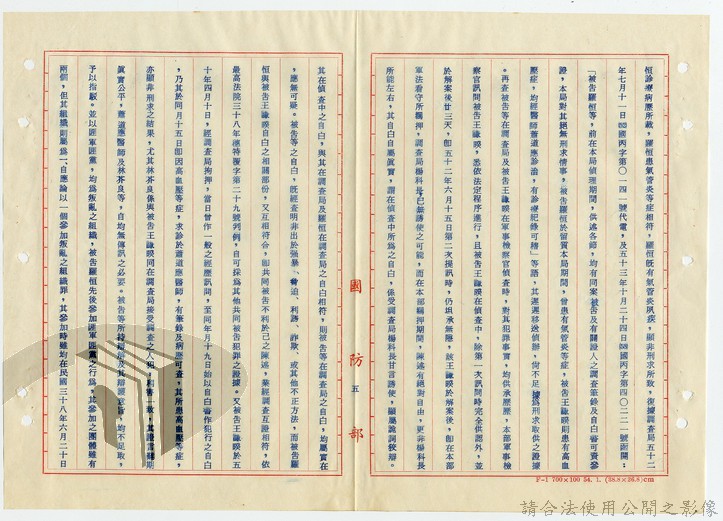 恒診療病歷所載，羅恒患氣管炎等症相符，羅恒既有氣管炎夙疾，顯非刑求所致，復據調查局五十二
年七月十一日㈤國丙字第〇一四一號代電，及五十三年十月二十四日國丙字第四〇二二一號函開：
「被告羅恒等，前在本局偵理期間，供述各節，均有同案被告及有關證人之調查筆錄及自白書可資參
證，本局對其絕無刑求情事，被告羅恒於留質本局期間，曾患有氣管炎等症，被告王詠暌則患有高血
壓症，均經醫師蕭道應診治，有診療紀錄可稽」等語，其遲遲移送偵辦，尚不足據為刑求取供之證據
。再查被告等在調查局及被告王詠暌在軍事檢察官偵查時，對其犯罪事實，均供承歷歷，本部軍事檢
察官訊問被告王詠暌，悉依法定程序進行，且被告王詠暌在偵查中，除第一次訊問時完全供認外，並
於解案後廿三天，即五十二年六月十五日第二次提訊時，仍坦承無隱，該王詠暌於解案後，即在本部
軍法看守所羈押，調查局楊科長已無誘使之可能，而在本部羈押期間，陳述有絕對自由，更非楊科長
所能左右，其自白自屬真實，謂在偵查中所為之自白，係受調查局楊科長甘言誘使，顯屬飾詞狡辯。
其在偵查中之自白，與其在調查局及羅恒在調查局之自白相符，則被告等在調查局之自白，均屬實在
，應無可疑。被告等之自白，既經查明非出於強暴、脅迫、利誘、詐欺、或其他不正方法，而被告羅
恒與被告王詠暌自白之相關部份，又互相符合，即共同被告不利於己之陳述，業經調查互證相符，依
最高法院三十八年穗特覆字第二十九號判例，自可採為其他共同被告犯罪之證據。又被告王詠暌於五
十年四月十日，經調查局拘押，當日曾作一般之經歷訊問，至同年月十九日始以自白書作犯行之自白
，乃其於同月十五日即因高血壓等症，求診於蕭道應醫師，有筆錄及病歷可查，其所患高血壓等症，
亦顯非刑求之結果，尤其林芥良係與被告王詠暌同在調查局接受調查之人犯，利害一致，其證言難期
真實公平，蕭道應醫師及林芥良等，自均無傳訊之必要。被告等所持抗辯及其辯護意旨，均不足取，
予以指駁。並以匪軍匪黨，均為叛亂之組織，被告羅恒先後參加匪軍匪黨之行為，其參加之團體雖有
兩個，但其組織則屬為一，自應論以一個參加叛亂之組織罪，其參加時雖均在民國三十八年六月二十日
國防部
五
F-1 700×100 54. 1. (38.8×26.8)cm
請合法使用公開之影像